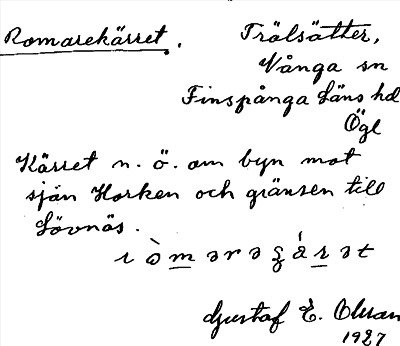 Romarekärret. Trälsätter,
Vånga sn
Finspånga Läns hd
Ögl
Kärret n. ö. om byn mot
sjön Horken och gränsen till
Lövnäs.
Gustaf E. Olman
1927